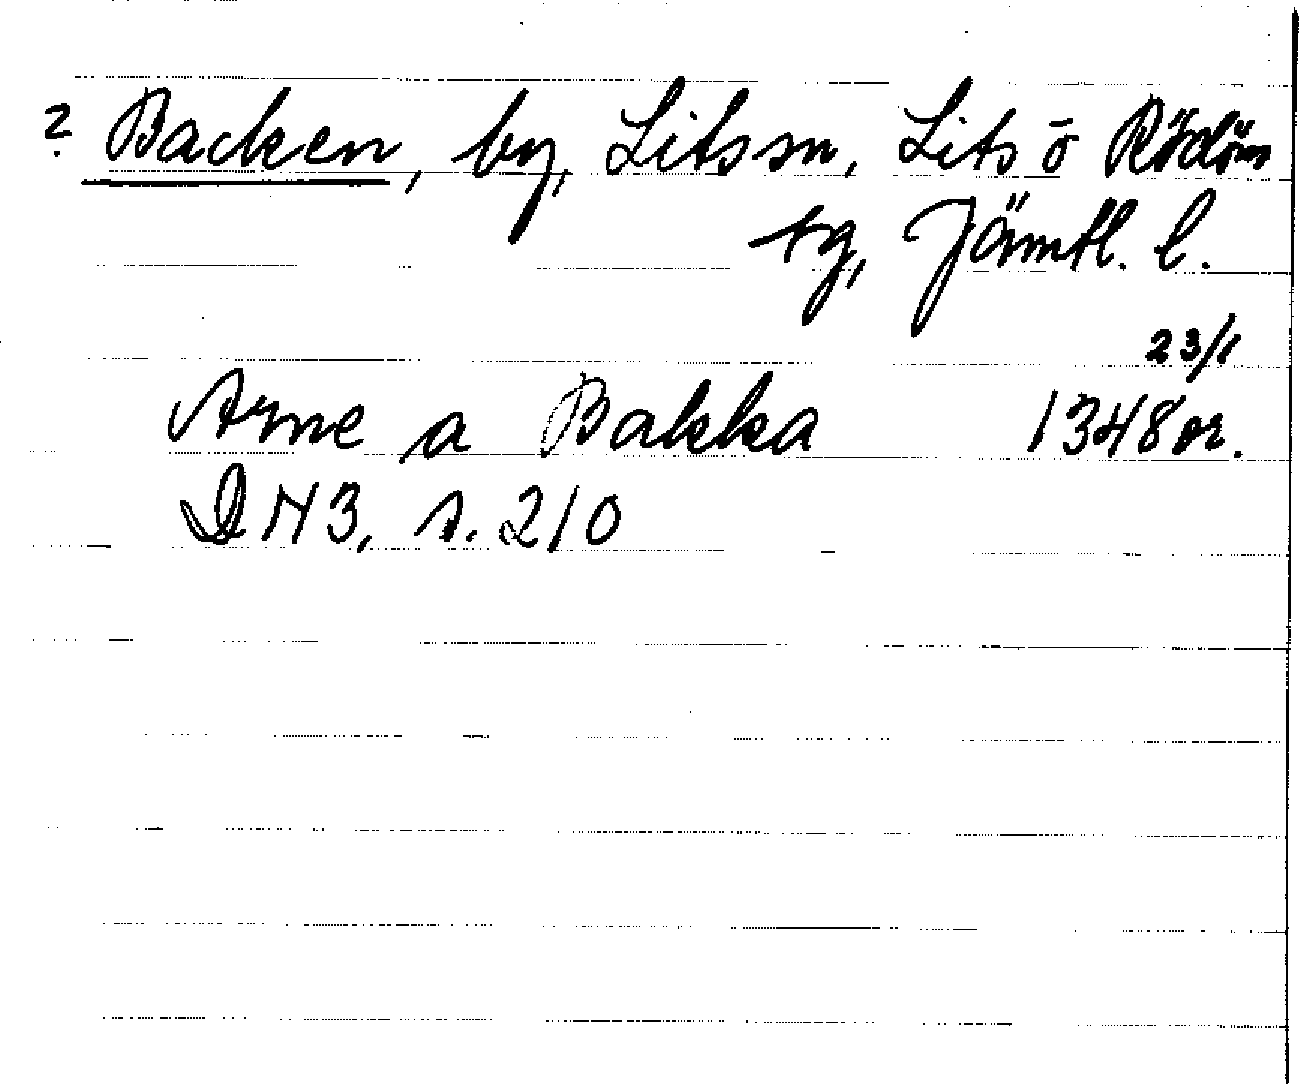 ? Backen, by, Lits sn, Lits o Rödöns
tg, Jämtl. l.
23/1
Arne a Bakka 1348 or.
DN 3, s. 210